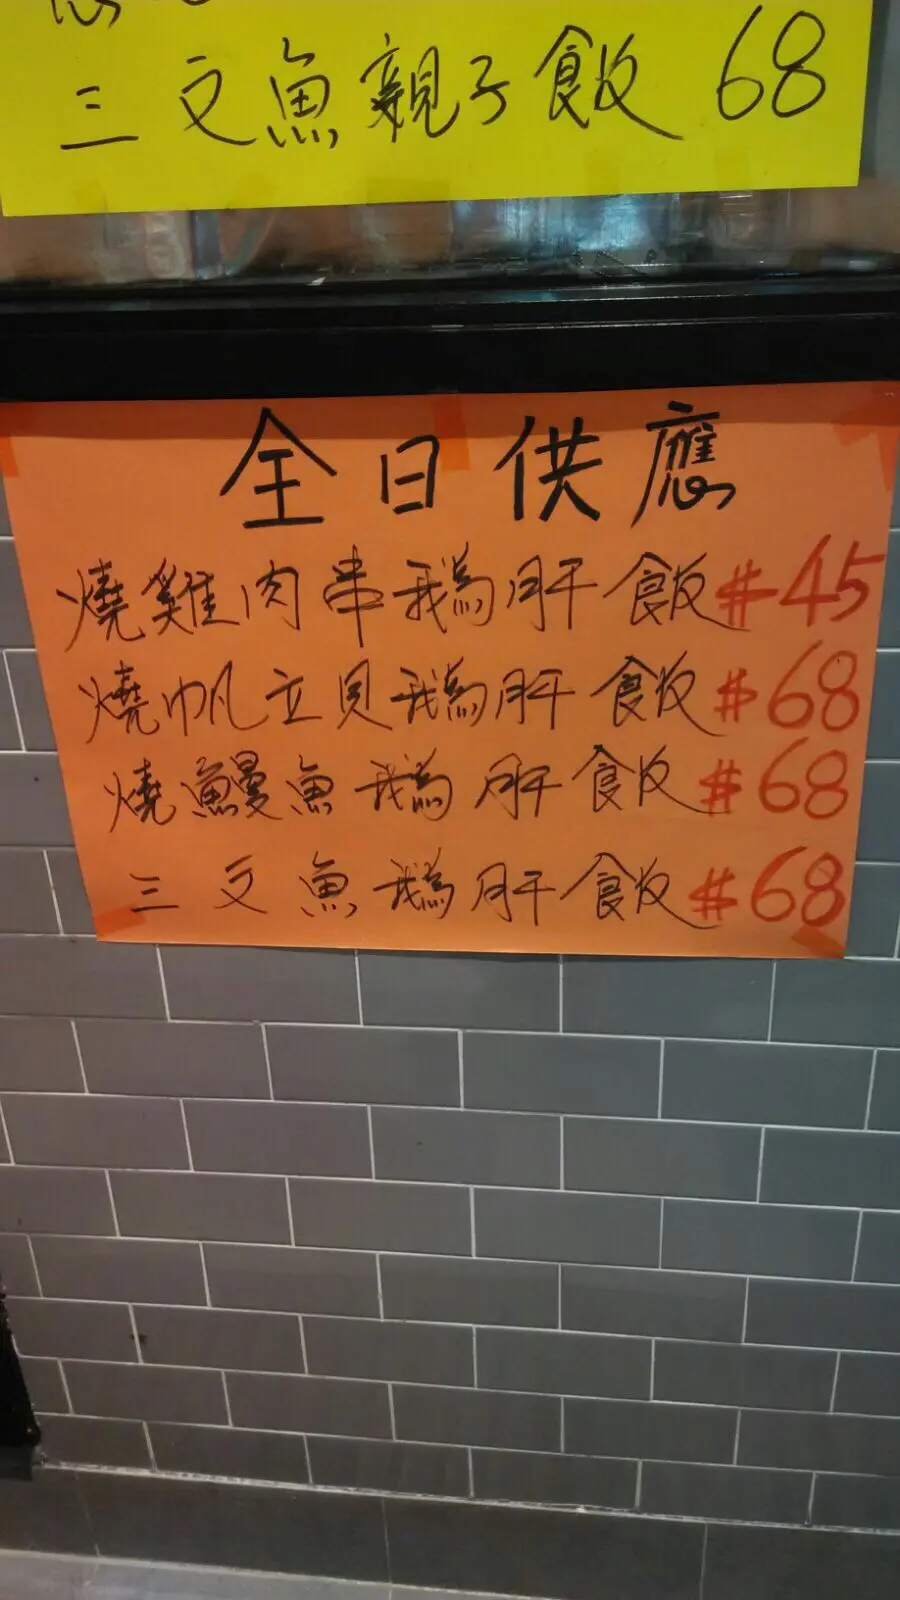 三文魚親子飯 68
全日供應
燒雞肉串鵝肝飯 $45
燒帆立貝鵝肝飯 $68
燒鰻魚鵝肝飯 $68
三文魚鵝肝飯 $68